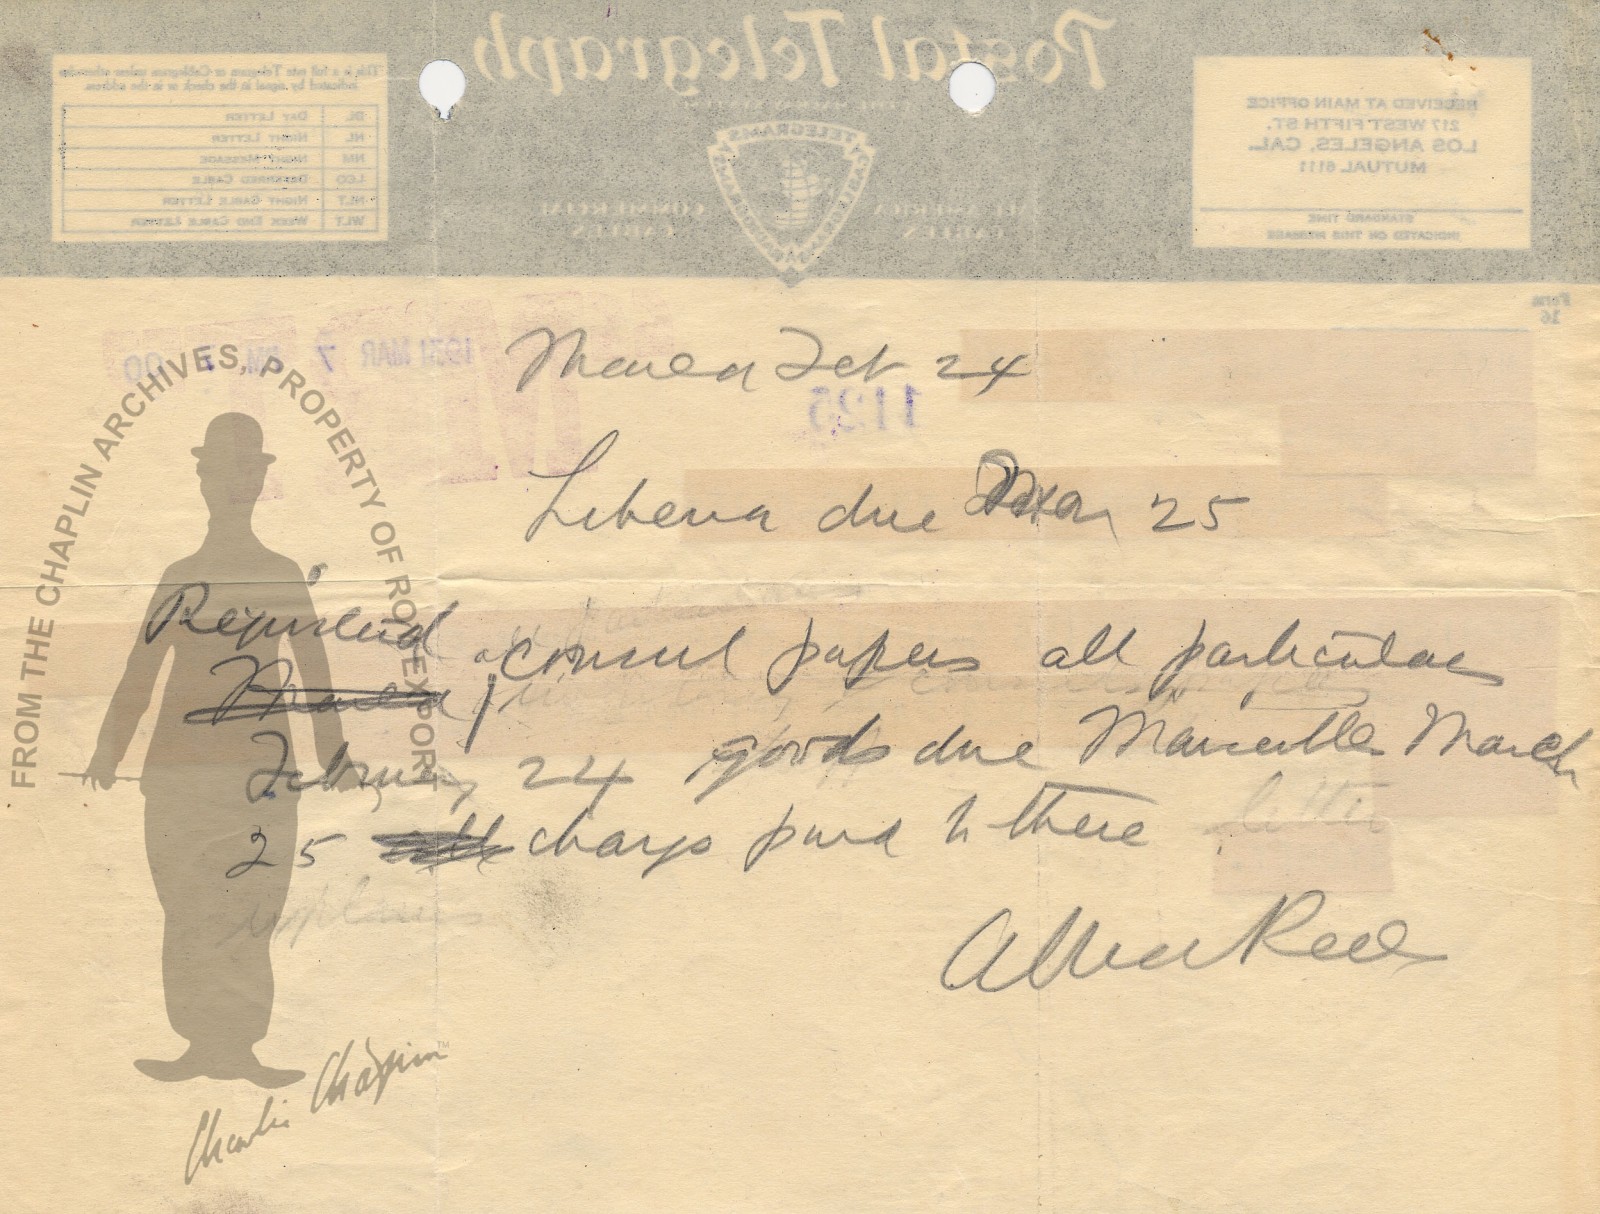 Postal Telegraph
This is a full rate Telegram or Cablegram unless otherwise
indicated by signal in the check or in the address.
DL DAY LETTER
NL NIGHT LETTER
NM NIGHT MESSAGE
LCO DEFERRED CABLE
NLT NIGHT CABLE LETTER
WLT WEEK END CABLE LETTER
TELEGRAMS
COMMERCIAL
CABLES
ALL AMERICA
CABLES
RECEIVED AT MAIN OFFICE
217 WEST FIFTH ST.
LOS ANGELES, CAL.
MUTUAL 6111
STANDARD TIME
INDICATED ON THIS MESSAGE
Form
16
1931 MAR 7 PM
1125
Feb 24
due 25
consul papers all particulars
February 24 goods due Marseilles March
25 charges paid to there
letter
explains
Reeves
FROM THE CHAPLIN ARCHIVES, PROPERTY OF ROY EXPORT
Charlie Chaplin™